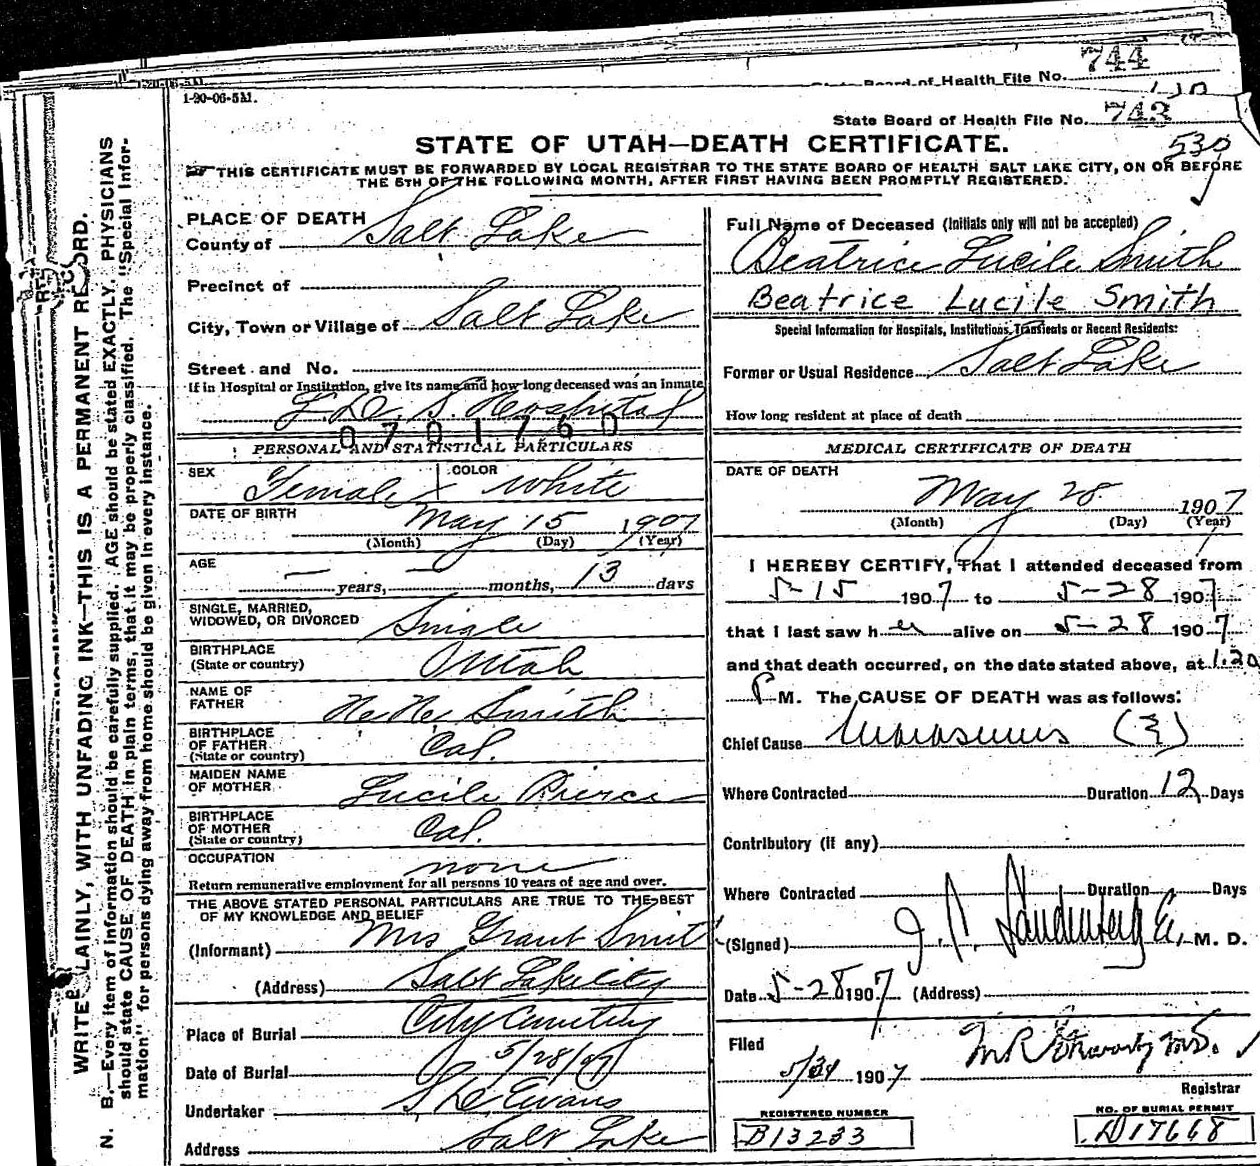 744
State Board of Health File No.
1-20-06-5M.
State Board of Health File No. 743
530
STATE OF UTAH—DEATH CERTIFICATE.
THIS CERTIFICATE MUST BE FORWARDED BY LOCAL REGISTRAR TO THE STATE BOARD OF HEALTH SALT LAKE CITY, ON OR BEFORE
THE 5TH OF THE FOLLOWING MONTH, AFTER FIRST HAVING BEEN PROMPTLY REGISTERED.
WRITE PLAINLY, WITH UNFADING INK—THIS IS A PERMANENT RECORD.
N. B.—Every item of information should be carefully supplied. AGE should be stated EXACTLY. PHYSICIANS
should state CAUSE OF DEATH in plain terms, that it may be properly classified. The "Special Infor-
mation" for persons dying away from home should be given in every instance.
PLACE OF DEATH
County of Salt Lake
Precinct of
City, Town or Village of Salt Lake
Street and No.
If in Hospital or Institution, give its name and how long deceased was an inmate
L.D.S. Hospital
0701760
PERSONAL AND STATISTICAL PARTICULARS
SEX Female COLOR White
DATE OF BIRTH May 15 1907
(Month) (Day) (Year)
AGE — years, — months, 13 days
SINGLE, MARRIED,
WIDOWED, OR DIVORCED Single
BIRTHPLACE
(State or country) Utah
NAME OF
FATHER Smith
BIRTHPLACE
OF FATHER
(State or country) Cal.
MAIDEN NAME
OF MOTHER Lucile Pierce
BIRTHPLACE
OF MOTHER
(State or country) Cal.
OCCUPATION none
Return remunerative employment for all persons 10 years of age and over.
THE ABOVE STATED PERSONAL PARTICULARS ARE TRUE TO THE BEST
OF MY KNOWLEDGE AND BELIEF
(Informant) Mrs Grant Smit
(Address) Salt Lake City
Place of Burial City Cemetery
Date of Burial 5/28/07
Undertaker Evans
Address Salt Lake
Full Name of Deceased (Initials only will not be accepted)
Beatrice Lucile Smith
Beatrice Lucile Smith
Special Information for Hospitals, Institutions, Transients or Recent Residents:
Former or Usual Residence Salt Lake
How long resident at place of death
MEDICAL CERTIFICATE OF DEATH
DATE OF DEATH
May 28 1907
(Month) (Day) (Year)
I HEREBY CERTIFY, That I attended deceased from
5-15 1907 to 5-28 1907
that I last saw her alive on 5-28 1907
and that death occurred, on the date stated above, at 1.20
P M. The CAUSE OF DEATH was as follows:
Chief Cause Marasmus (?)
Where Contracted Duration 12 Days
Contributory (if any)
Where Contracted Duration Days
(Signed) M. D.
Date 5-28 1907 (Address)
Filed
5/31 1907
Registrar
REGISTERED NUMBER
B13233
NO. OF BURIAL PERMIT
D17668